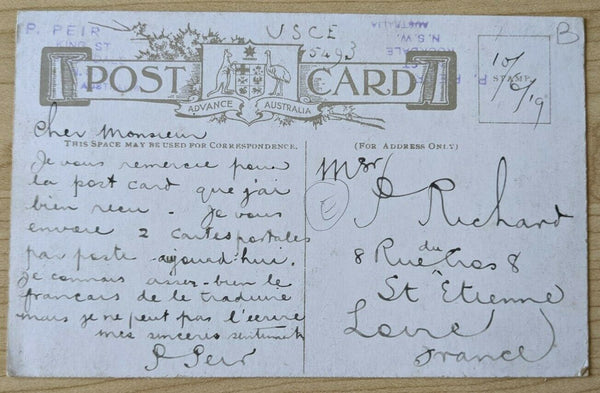 P. PEIR
KING ST
USCE
5493
ROCKDALE
N.S.W.
AUSTRALIA
B
POST CARD
ADVANCE AUSTRALIA
STAMP
10/6/19
Cher Monsieur
THIS SPACE MAY BE USED FOR CORRESPONDENCE.
(FOR ADDRESS ONLY.)
Je vous remercie pour
la post card que j'ai
bien recu - Je vous
envoie 2 cartes postales
par poste aujourd'hui.
Je connais assez bien le
français de le traduire
mais je ne peut pas l'ecrire
mes sinceres sentiments
P Peir
Msr
E
P Richard
8 Rue du Gros 8
St Étienne
Loire
France